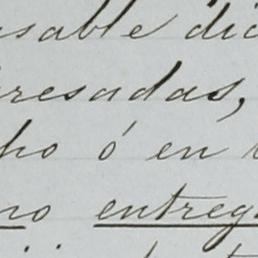 sable dic
resadas,
ho ó en
no entreg